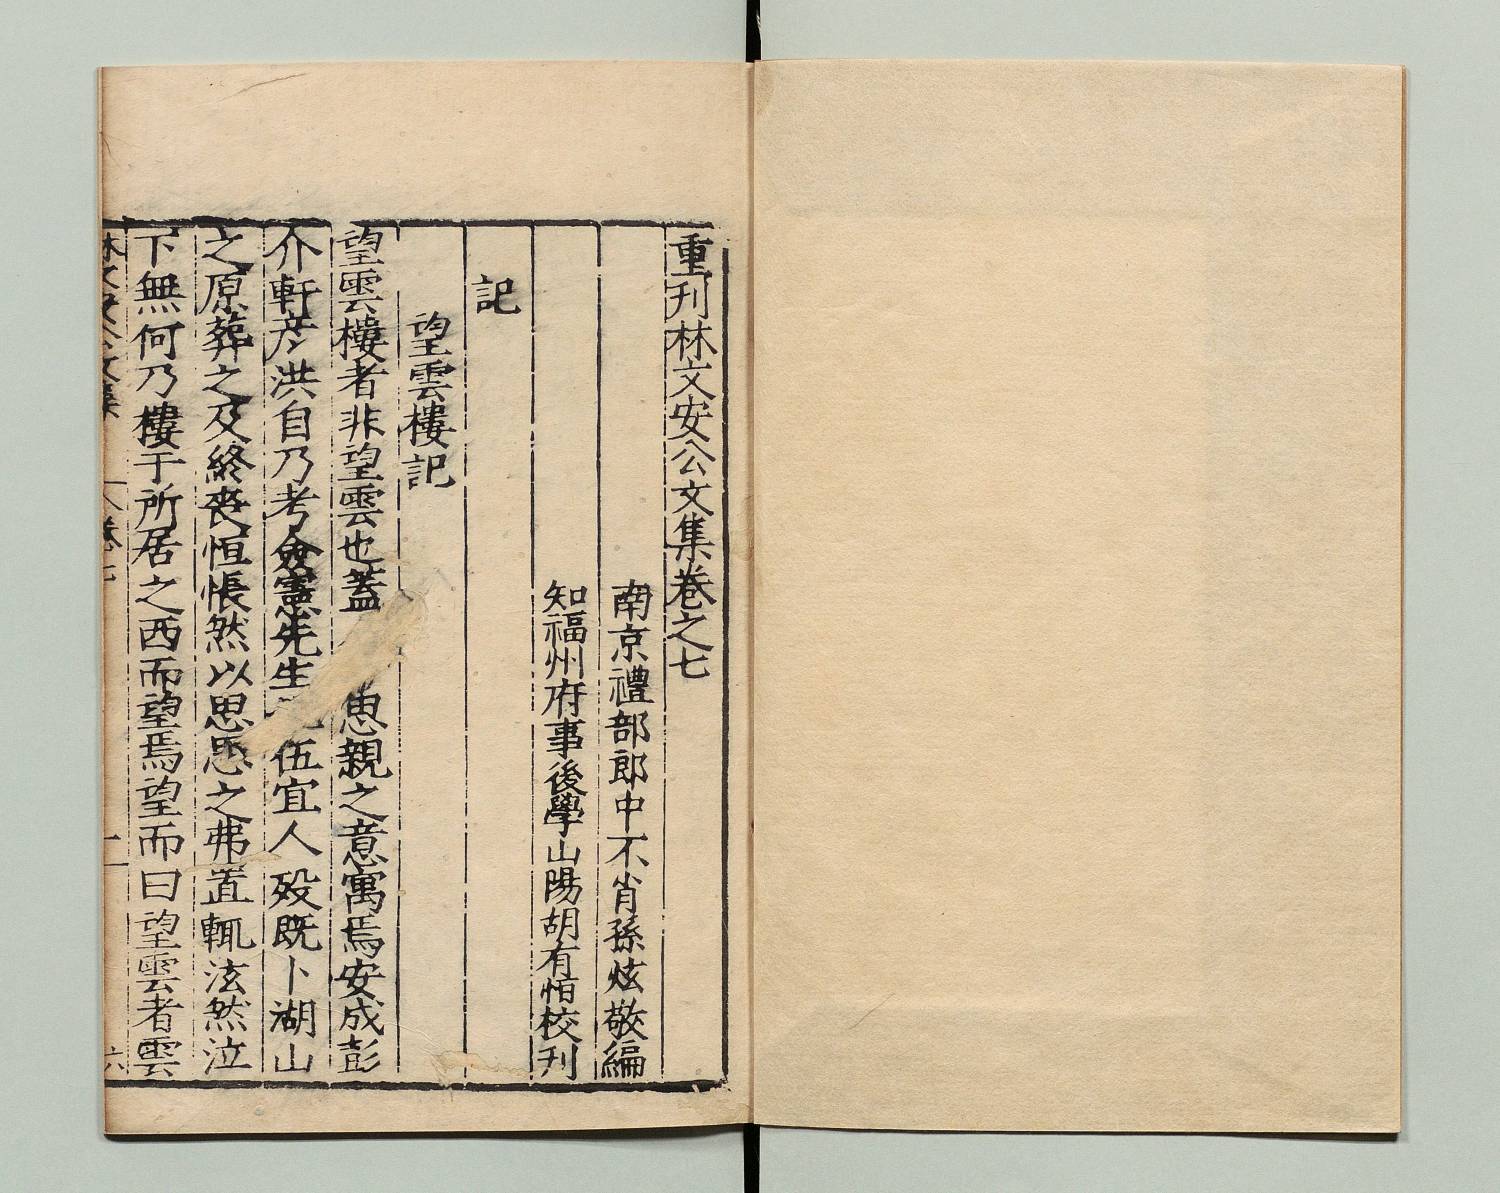 重刊林文安公文集卷之七
南京禮部郎中不肖孫炫敬編
知福州府事後學山陽胡有恒校刊
記
望雲樓記
望雲樓者非望雲也蓋 思親之意寓焉安成彭
介軒彦洪自乃考僉憲先生 伍宜人歿既卜湖山
之原葬之及終喪恒悵然以思思之弗置輒泫然泣
下無何乃樓于所居之西而望焉望而曰望雲者雲
林文安公文集 卷七 一 六